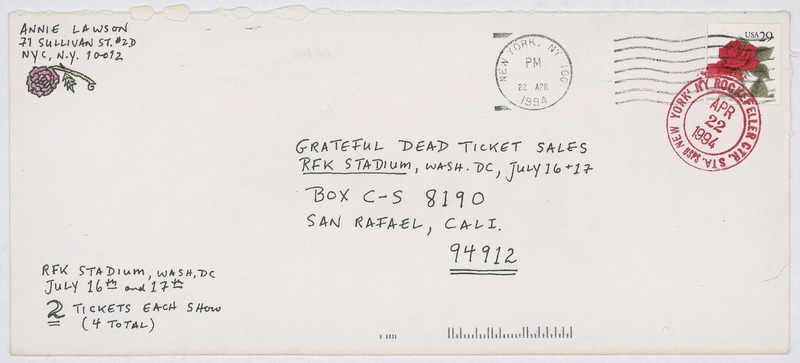 ANNIE LAWSON
71 SULLIVAN ST. #2D
NYC, N.Y. 10012
NEW YORK, NY 100
PM
22 APR
1994
USA 29
NEW YORK, NY ROCKEFELLER CTR. STA.
APR
22
1994
GRATEFUL DEAD TICKET SALES
RFK STADIUM, WASH. DC, JULY 16+17
BOX C-S 8190
SAN RAFAEL, CALI.
94912
RFK STADIUM, WASH, DC
JULY 16th and 17th
2 TICKETS EACH SHOW
(4 TOTAL)